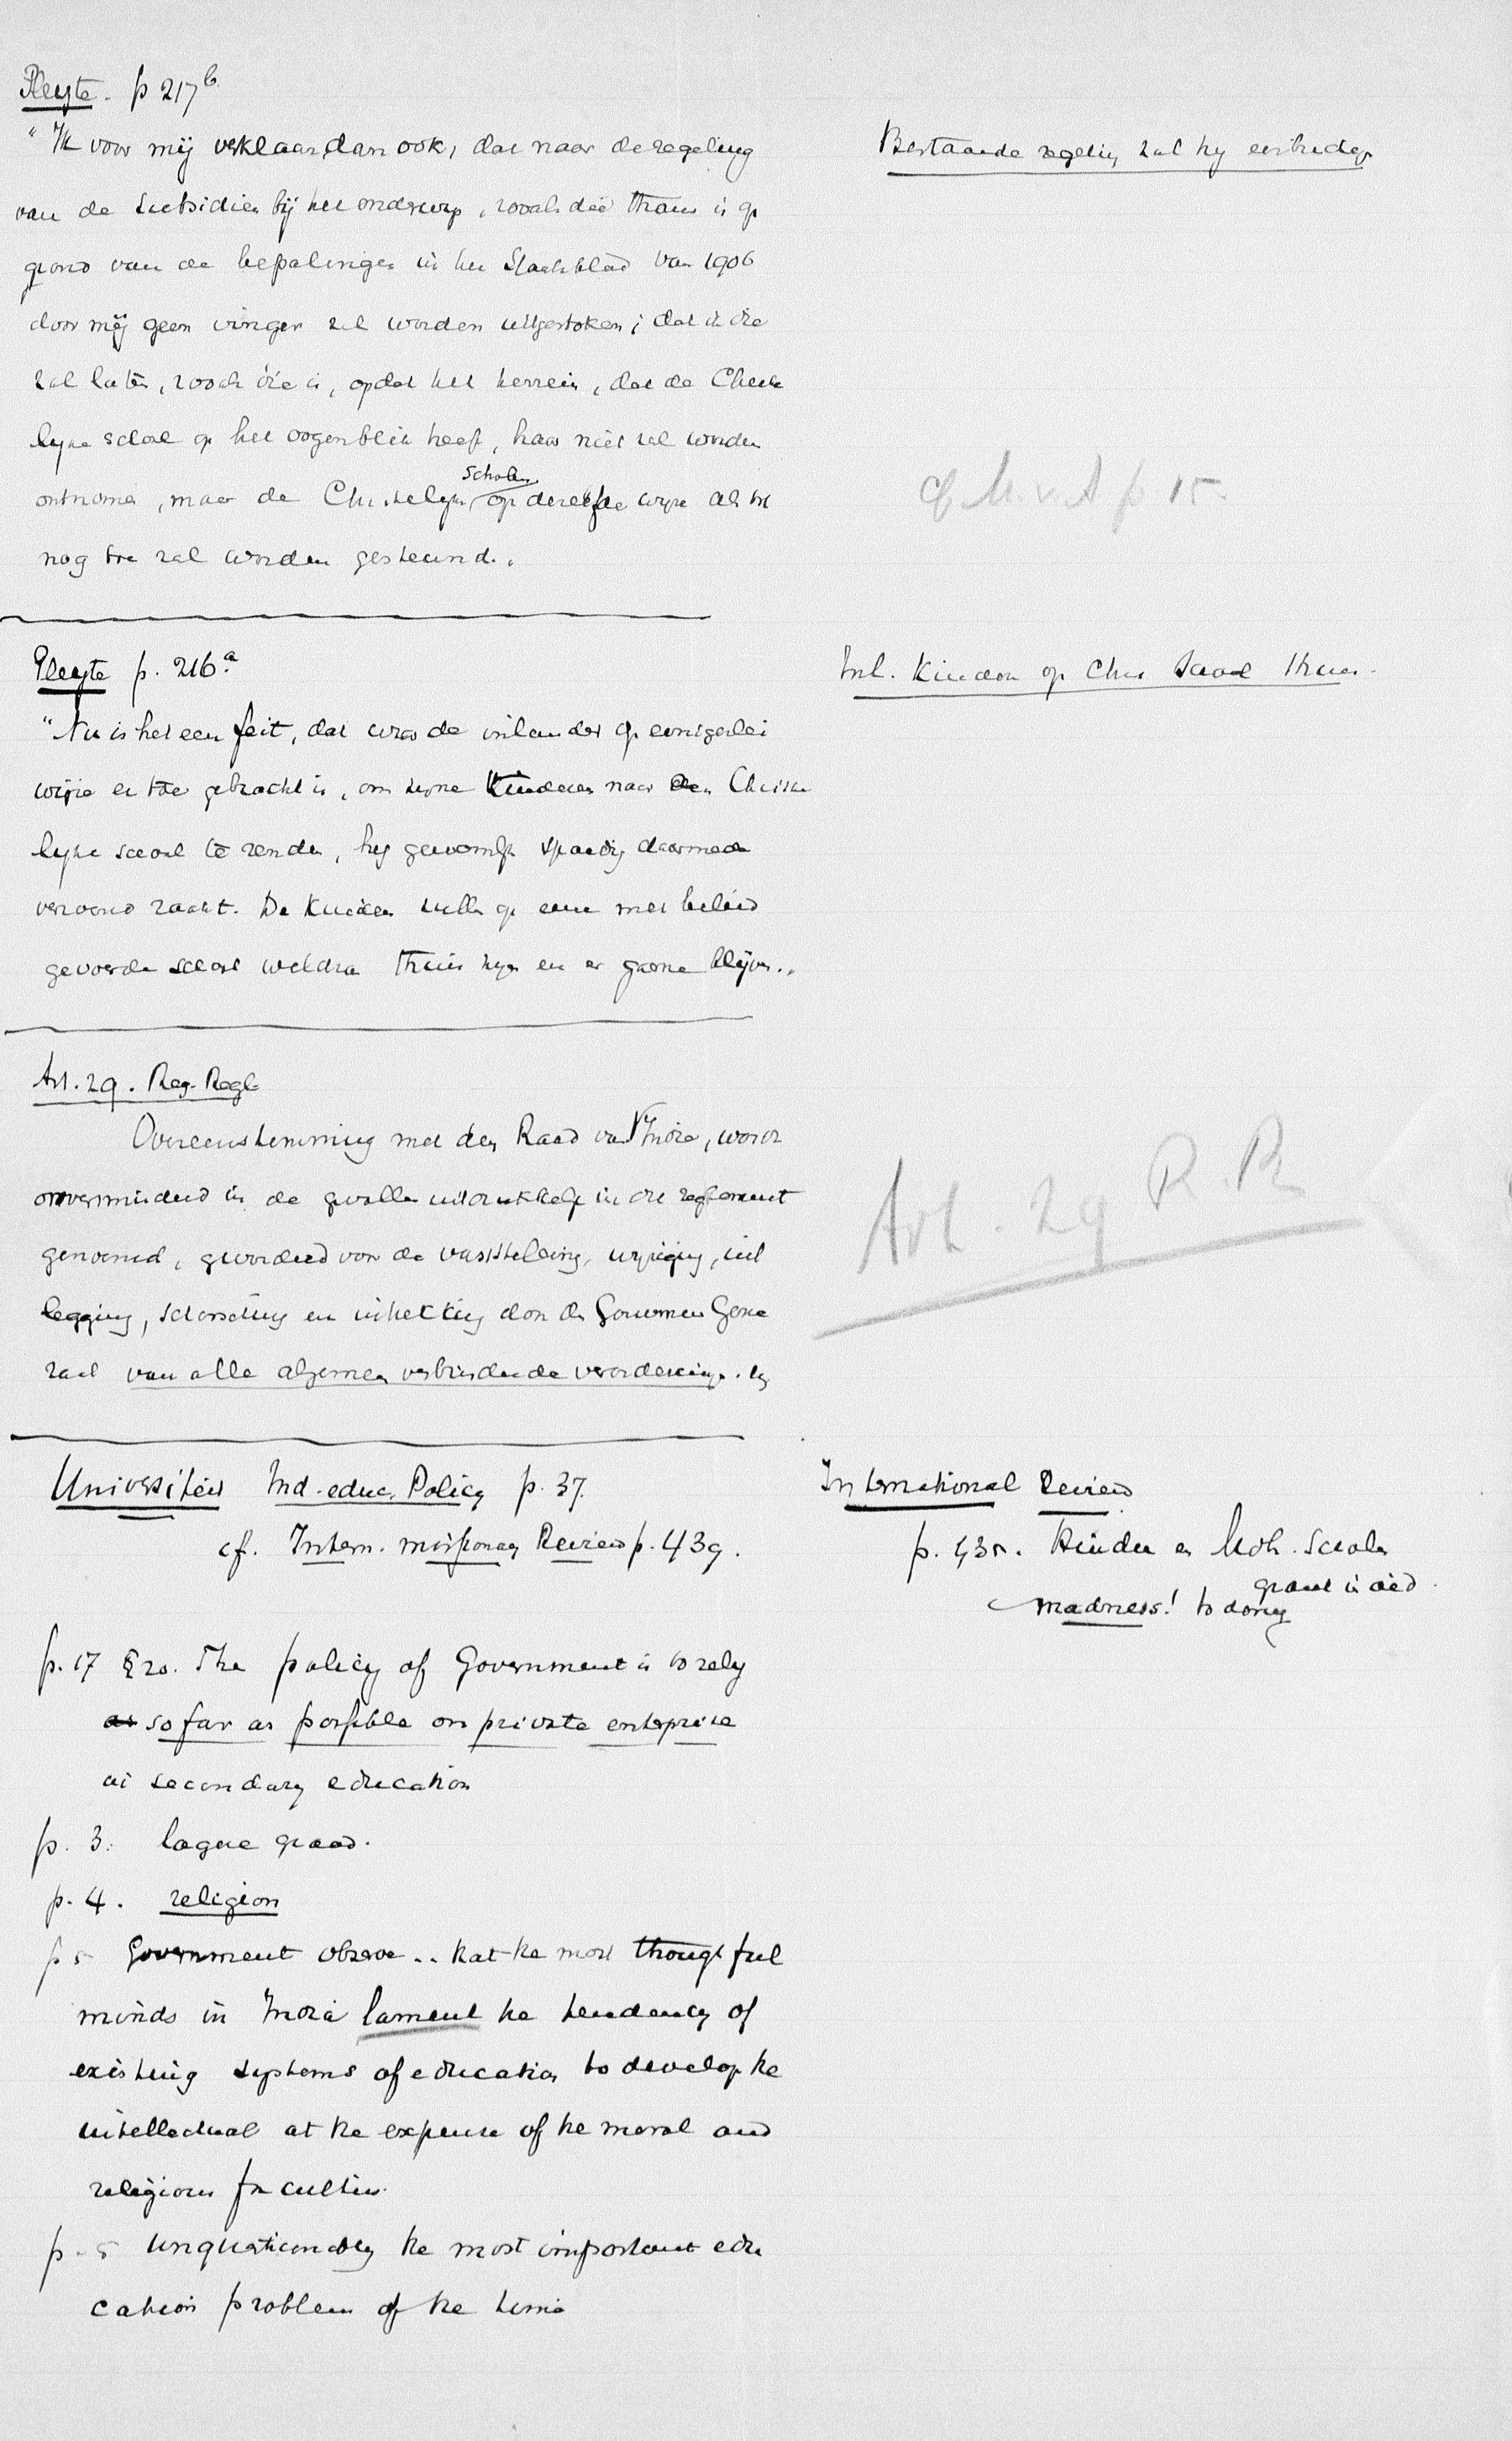 Pleyte. p 217b
"Ik voor mij verklaar dan ook, dat naar de regeling
van de subsidien bij het onderwijs, zooals die thans is op
grond van de bepalingen in het Staatsblad van 1906
door mij geen vinger zal worden uitgestoken; dat ik die
zal laten, zooals die is, opdat het terrein, dat de Christe
lijke school op het oogenblik heeft, haar niet zal worden
ontnomen, maar de Christelijke scholen op dezelfde wijze als tot
nog toe zal worden gesteund."
Bestaande regeling zal hij eerbiedigen
cf M.v.A p 15.
Pleyte p. 216a
"Nu is het een feit, dat waar de inlander op eenigerlei
wijze er toe gebracht is, om zijne kinderen naar den Christe
lijke school te zenden, hij gewoonlijk spoedig daarmede
verzoend raakt. De kinderen zullen op eene met beleid
gevoerde school weldra thuis zijn en er gaarne blijven."
Inl. kinderen op Chr. school thuis.
Art. 29. Reg. Regl.
Overeenstemming met den Raad van Indië, wordt
onverminderd in de gevallen uitdrukkelijk in dit reglement
genoemd, gevorderd voor de vaststelling, wijziging, uit
legging, schorsching en intrekking door den Gouverneur Gene
raal van alle algemeen verbindende verordeningen.
Art. 29 R.R
Universiteit Ind. educ. Policy p. 37.
cf. Intern. missionary Review p. 439.
International Review
p. 435. Hindu en Moh. Scholen
grant in aid.
madness! to deny
p. 17 §20. The policy of Government is to rely
as so far as possible on private enterprise
in secondary education
p. 3: lagere graad.
p. 4. religion
p 5 Government observe .. that the most thoughtful
minds in India lament the tendency of
existing systems of education to develop the
intellectual at the expense of the moral and
religious faculties.
p. 5 unquestionably the most important edu
cation problem of the time